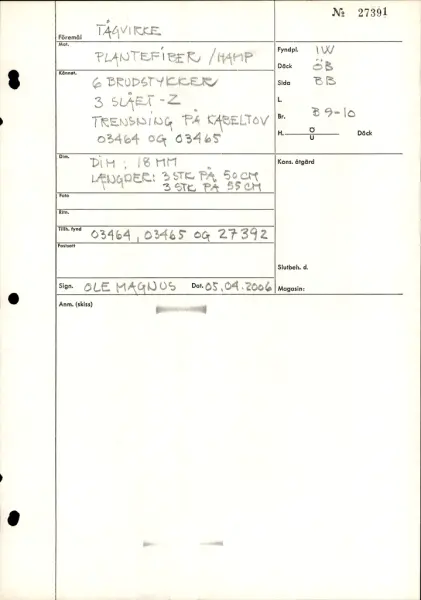 № 27391
Föremål TÅGVIRKE
Mat. PLANTEFIBER / HAMP
Fyndpl. 1W
Däck ÖB
Sida BB
L.
Br. B 9-10
H. Ö
U Däck
Kännet.
6 BRUDSTYKKER
3 SLÅET - Z
TRENSNING PÅ KABELTOV
03464 OG 03465
Dim. DIM : 18 MM
LÆNGDER: 3 STK PÅ 50 CM
3 STK PÅ 55 CM
Kons. åtgärd
Foto
Ritn.
Tillh. fynd 03464, 03465 OG 27392
Fotoatt
Slutbeh. d.
Sign. OLE MAGNUS Dat. 05.04.2006
Magasin:
Anm. (skiss)